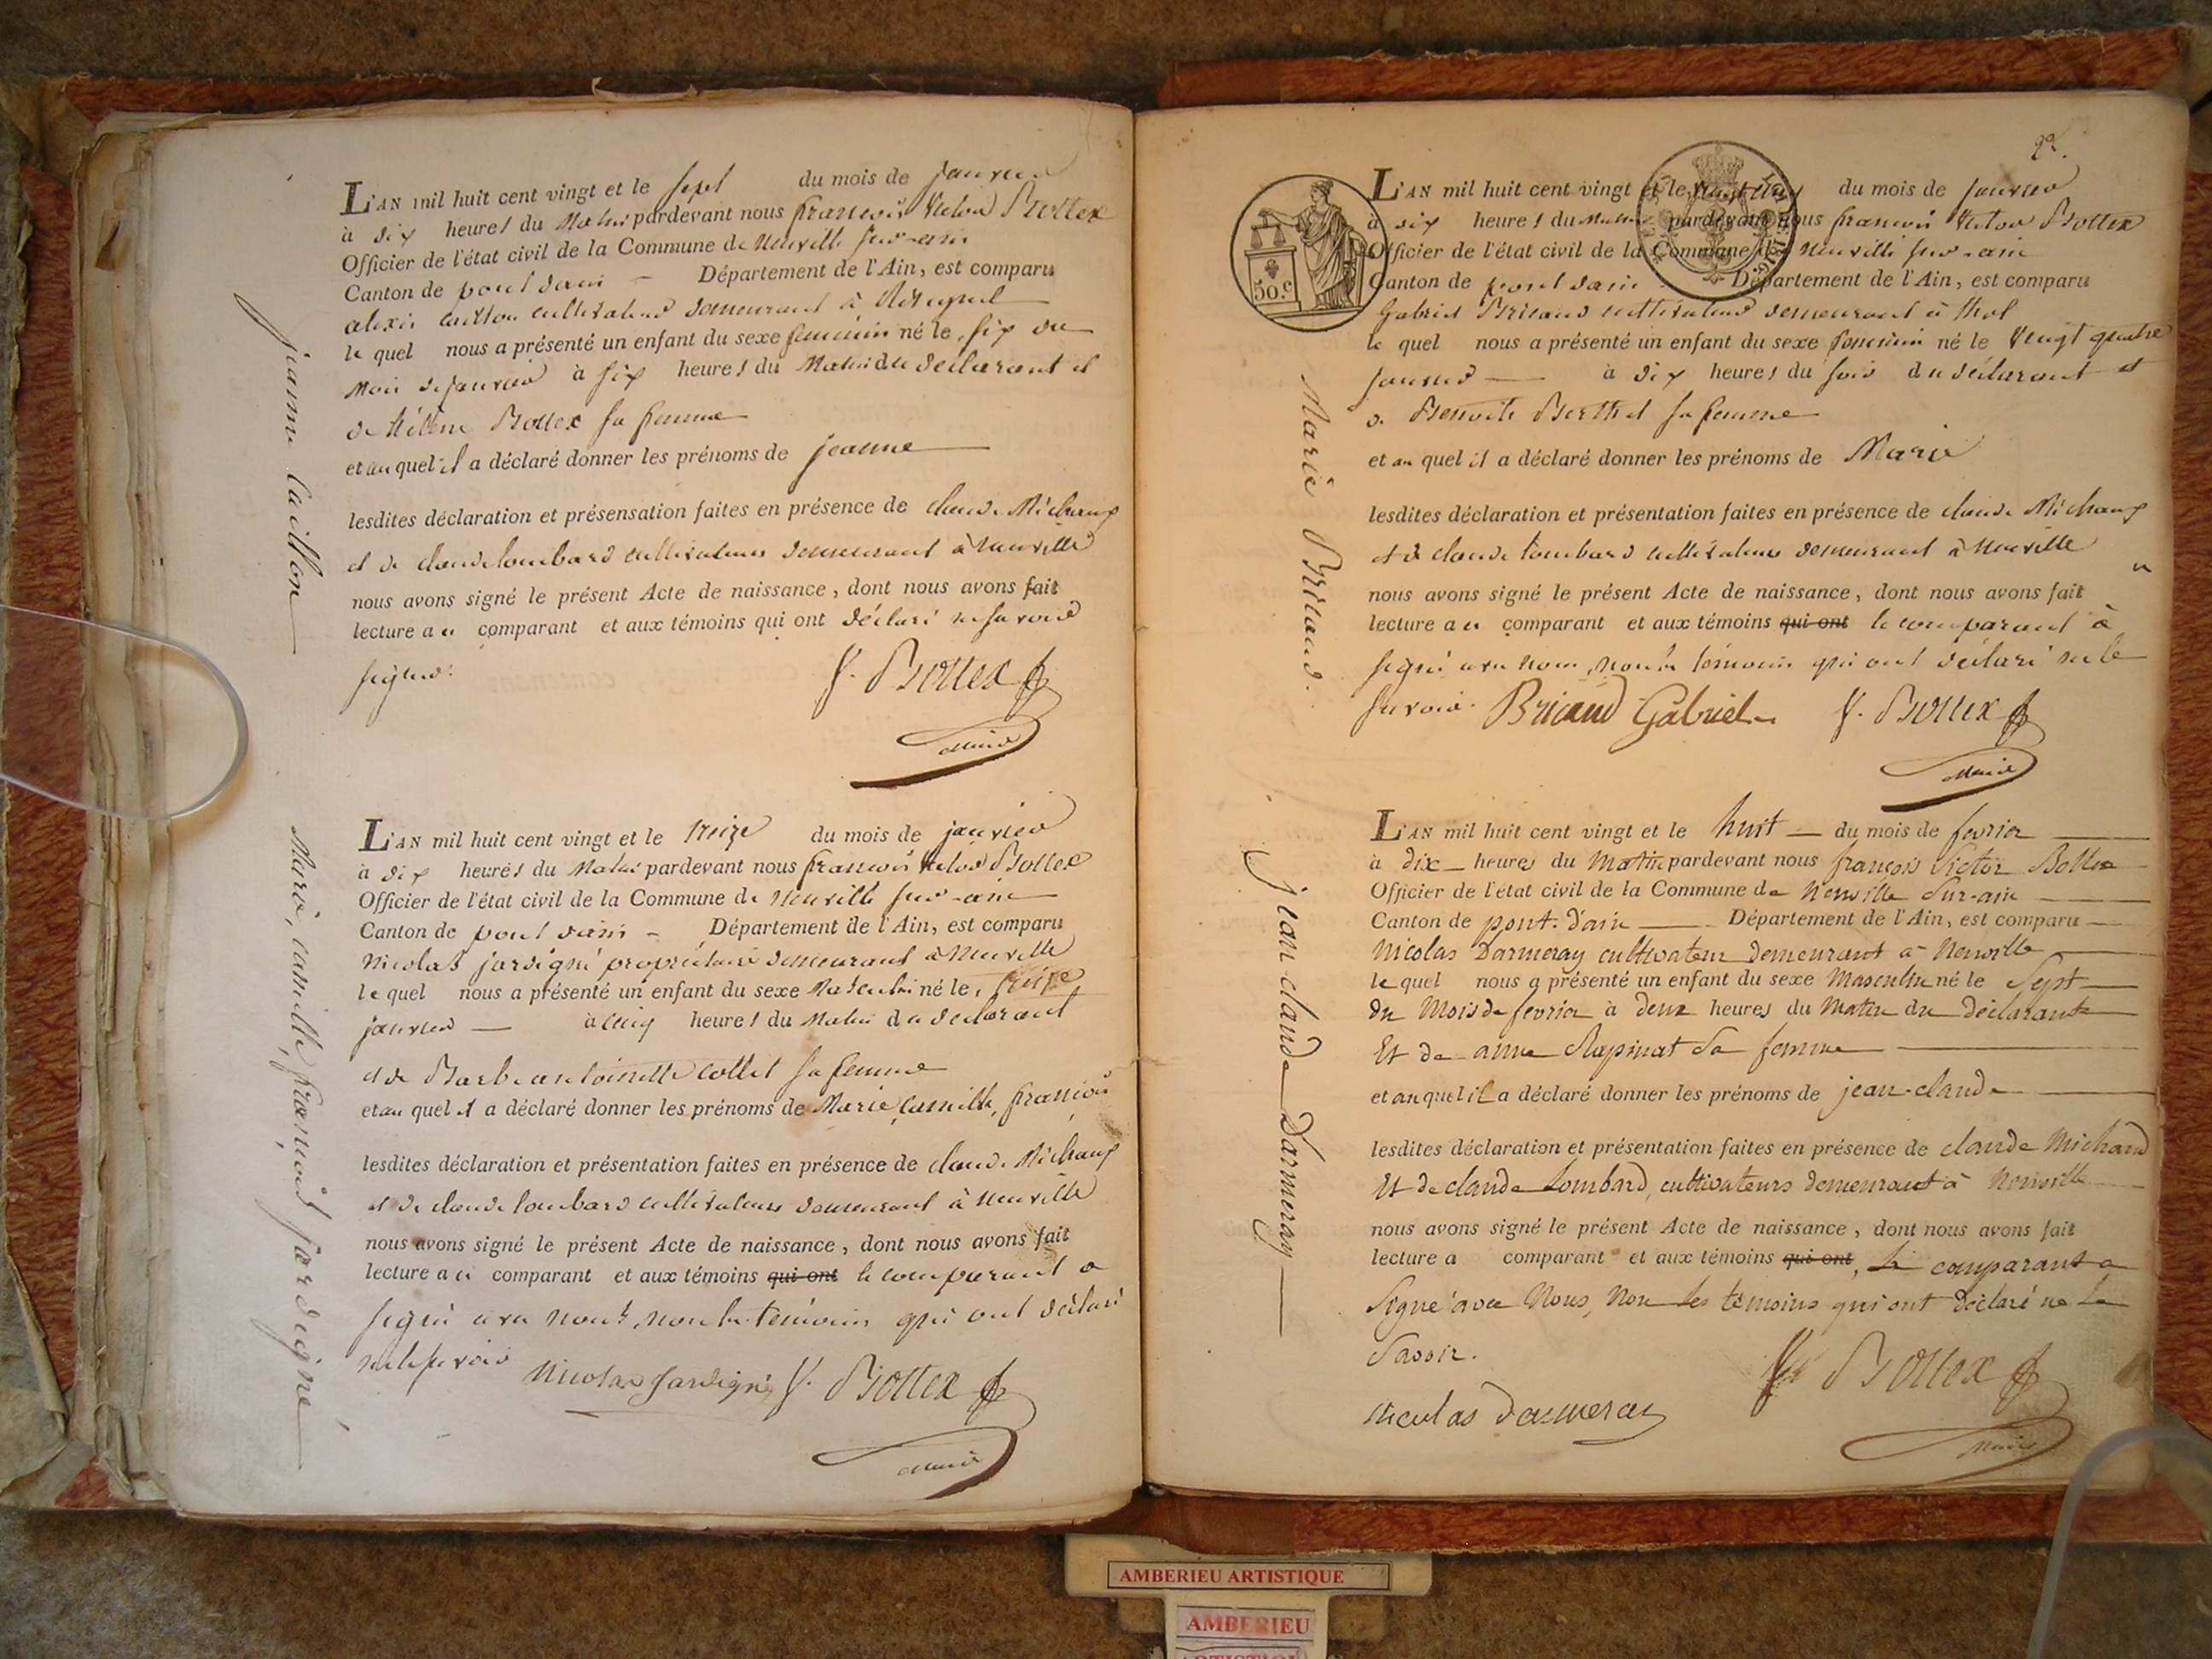 L'AN mil huit cent vingt et le sept du mois de janvier
à dix heures du Matin pardevant nous françois Victor Bottex
Officier de l'état civil de la Commune de Neuville sur-ain
Canton de pont dain - Département de l'Ain, est comparu
alexis caillon cultivateur demeurant à
le quel nous a présenté un enfant du sexe feminin né le six du
mois de janvier à six heures du Matin du declarant et
de hélène Bottex sa femme
et au quel il a déclaré donner les prénoms de jeanne
lesdites déclaration et présensation faites en présence de claude Michaux
et de claude lombard cultivateurs demeurant à neuville
nous avons signé le présent Acte de naissance, dont nous avons fait
lecture au comparant et aux témoins qui ont déclaré ne savoir
signer.
f. Bottex
maire
jeanne Caillon
L'AN mil huit cent vingt et le treize du mois de janvier
à dix heures du Matin pardevant nous françois victor Bottex
Officier de l'état civil de la Commune de Neuville sur-ain
Canton de pont dain - Département de l'Ain, est comparu
Nicolas jardigné propriétaire demeurant à Neuville
le quel nous a présenté un enfant du sexe Masculin né le treize
janvier à cinq heures du Matin du declarant
et de Barbe antoinette collet sa femme
et au quel il a déclaré donner les prénoms de Marie, Camille, françois
lesdites déclaration et présentation faites en présence de claude Michaux
et de claude lombard cultivateurs demeurant à neuville
nous avons signé le présent Acte de naissance, dont nous avons fait
lecture au comparant et aux témoins qui ont le comparant a
signé avec nous, non les témoins qui ont déclaré
ne le savoir
Nicolas jardigné f. Bottex
maire
Marie, camille, françois jardigné
22.
50.c
L'AN mil huit cent vingt et le du mois de janvier
à dix heures du Matin pardevant nous françois Victor Bottex
Officier de l'état civil de la Commune de Neuville sur-ain
Canton de pont dain - Département de l'Ain, est comparu
Gabriel Bricaud cultivateur demeurant à thol
le quel nous a présenté un enfant du sexe feminin né le vingt quatre
janvier à dix heures du soir du déclarant et
de Benoite Berthet sa femme
et au quel il a déclaré donner les prénoms de Marie
lesdites déclaration et présentation faites en présence de claude Michaux
et de claude lombard cultivateurs demeurant à Neuville
nous avons signé le présent Acte de naissance, dont nous avons fait
lecture au comparant et aux témoins qui ont le comparant à
signé avec nous, non les témoins qui ont déclaré ne le
savoir. Bricaud Gabriel f. Bottex
maire
Marie Bricaud.
L'AN mil huit cent vingt et le huit du mois de fevrier
à dix heures du Matin pardevant nous françois Victor Bottex
Officier de l'état civil de la Commune de Neuville Sur-ain
Canton de pont-d'ain Département de l'Ain, est comparu
Nicolas Darmeray cultivateur demeurant à Neuville
le quel nous a présenté un enfant du sexe Masculin né le Sept
du Mois de fevrier à deux heures du Matin du déclarant
Et de anne Rapinat Sa femme
et au quel il a déclaré donner les prénoms de jean-claude
lesdites déclaration et présentation faites en présence de claude Michaud
Et de claude Lombard, cultivateurs demeurant à Neuville
nous avons signé le présent Acte de naissance, dont nous avons fait
lecture a comparant et aux témoins qui ont, le comparant a
Signé avec Nous, Non les témoins qui ont déclaré ne le
Savoir.
f. Bottex
nicolas darmeray
maire
jean claude Darmeray
AMBERIEU ARTISTIQUE
AMBERIEU
ARTISTIQUE